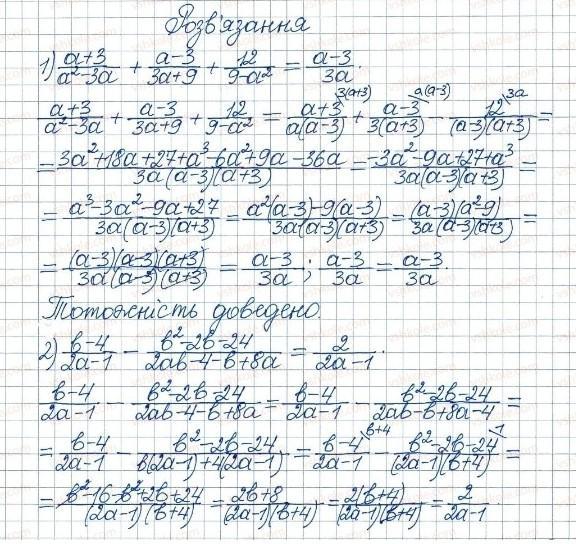 Розв'язання
1) \frac{a+3}{a^2-3a} + \frac{a-3}{3a+9} + \frac{12}{9-a^2} = \frac{a-3}{3a}.
\frac{a+3}{a^2-3a} + \frac{a-3}{3a+9} + \frac{12}{9-a^2} = \frac{a+3}{a(a-3)}^{\backslash 3(a+3)} + \frac{a-3}{3(a+3)}^{\backslash a(a-3)} - \frac{12}{(a-3)(a+3)}^{\backslash 3a} =
= \frac{3a^2+18a+27+a^3-6a^2+9a-36a}{3a(a-3)(a+3)} = \frac{-3a^2-9a+27+a^3}{3a(a-3)(a+3)} =
= \frac{a^3-3a^2-9a+27}{3a(a-3)(a+3)} = \frac{a^2(a-3)-9(a-3)}{3a(a-3)(a+3)} = \frac{(a-3)(a^2-9)}{3a(a-3)(a+3)} =
= \frac{(a-3)(a-3)(a+3)}{3a(a-3)(a+3)} = \frac{a-3}{3a}; \frac{a-3}{3a} = \frac{a-3}{3a}.
Тотожність доведено.
2) \frac{b-4}{2a-1} - \frac{b^2-2b-24}{2ab-4-b+8a} = \frac{2}{2a-1}.
\frac{b-4}{2a-1} - \frac{b^2-2b-24}{2ab-4-b+8a} = \frac{b-4}{2a-1} - \frac{b^2-2b-24}{2ab-b+8a-4} =
= \frac{b-4}{2a-1} - \frac{b^2-2b-24}{b(2a-1)+4(2a-1)} = \frac{b-4}{2a-1}^{\backslash b+4} - \frac{b^2-2b-24}{(2a-1)(b+4)}^{\backslash 1} =
= \frac{b^2-16-b^2+2b+24}{(2a-1)(b+4)} = \frac{2b+8}{(2a-1)(b+4)} = \frac{2(b+4)}{(2a-1)(b+4)} = \frac{2}{2a-1}.